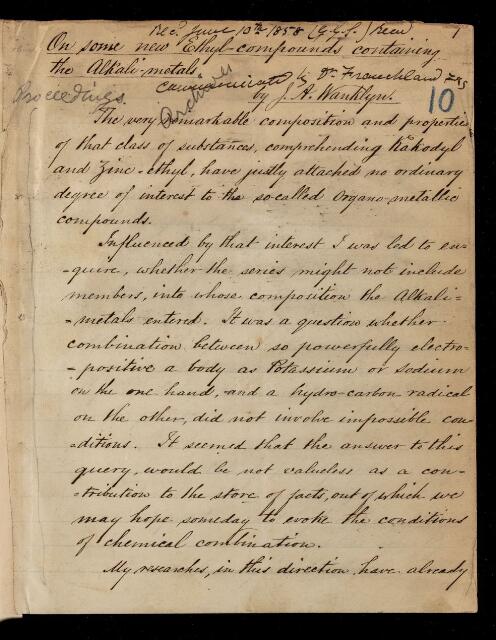 Rec.d June 10th 1858 (G.G.S.) Read
1
On some new Ethyl-compounds containing
the Alkali-metals.
communicated by Dr. Franckland FRS
Proceedings.
Archives
by J. A. Wanklyn.
10
The very remarkable composition and properties
of that class of substances, comprehending Kakodyl
and Zinc-ethyl, have justly attached no ordinary
degree of interest to the so called Organo-metallic
compounds.
Influenced by that interest I was led to en-
-quire, whether the series might not include
members, into whose composition the Alkali-
-metals entered. It was a question whether
combination between so powerfully electro-
-positive a body as Potassium or Sodium
on the one hand, and a hydro-carbon radical
on the other, did not involve impossible con-
-ditions. It seemed that the answer to this
query, would be not valueless as a con-
-tribution to the store of facts, out of which we
may hope someday to evoke the conditions
of chemical combination.
My researches, in this direction have already